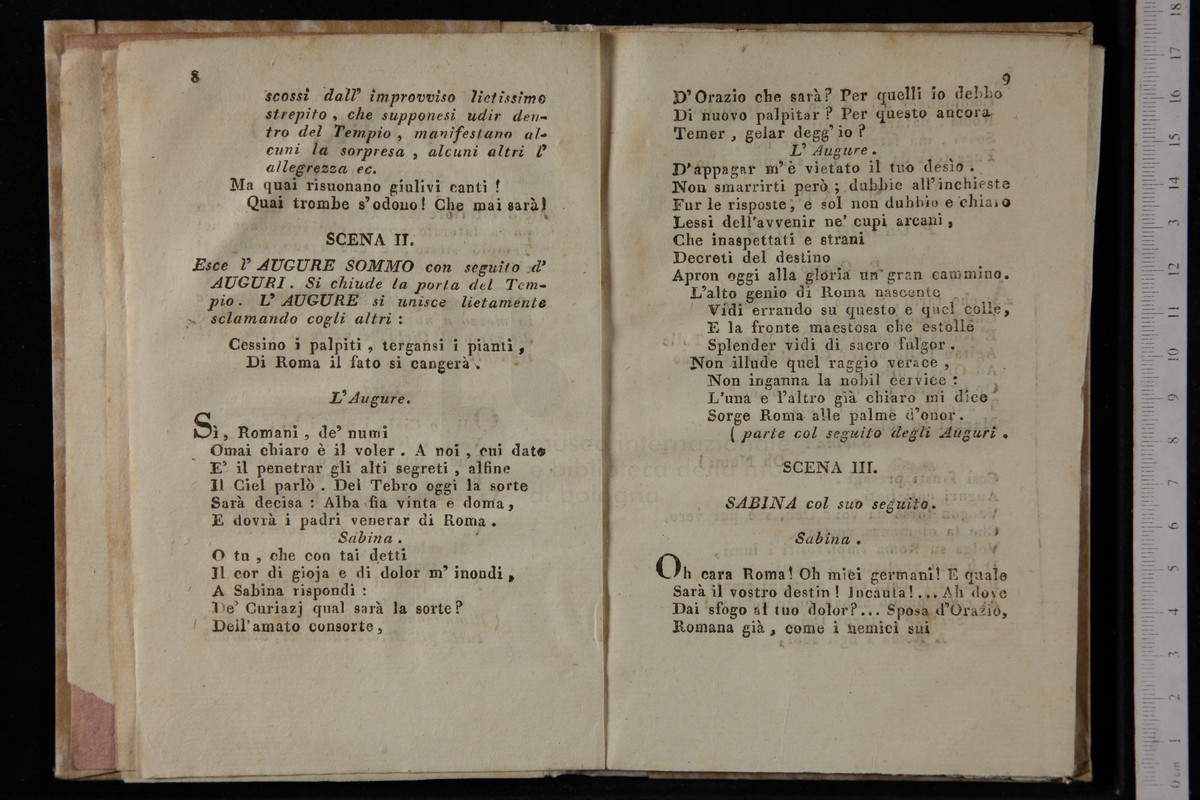 8
scossi dall' improvviso lietissimo
strepito , che supponesi udir den-
tro del Tempio , manifestano al-
cuni la sorpresa , alcuni altri l'
allegrezza ec.
Ma quai risuonano giulivi canti !
Quai trombe s'odono! Che mai sarà!
SCENA II.
Esce l' AUGURE SOMMO con seguito d'
AUGURI. Si chiude la porta del Tem-
pio. L' AUGURE si unisce lietamente
sclamando cogli altri :
Cessino i palpiti , tergansi i pianti ,
Di Roma il fato si cangerà .
L' Augure.
Sì, Romani , de' numi
Omai chiaro è il voler . A noi , cui dato
E' il penetrar gli alti segreti , alfine
Il Ciel parlò . Del Tebro oggi la sorte
Sarà decisa : Alba fia vinta e doma,
E dovrà i padri venerar di Roma .
Sabina .
O tu , che con tai detti
Il cor di gioja e di dolor m' inondi ,
A Sabina rispondi :
De' Curiazj qual sarà la sorte?
Dell'amato consorte,
9
D' Orazio che sarà? Per quelli io debbo
Di nuovo palpitar ? Per questo ancora
Temer , gelar degg' io ?
L' Augure .
D'appagar m' è vietato il tuo desìo .
Non smarrirti però ; dubbie all' inchieste
Fur le risposte, e sol non dubbio e chiaro
Lessi dell'avvenir ne' cupi arcani ,
Che inaspettati e strani
Decreti del destino
Apron oggi alla gloria un gran cammino.
L'alto genio di Roma nascente
Vidi errando su questo e quel colle,
E la fronte maestosa che estolle
Splender vidi di sacro fulgor .
Non illude quel raggio verace ,
Non inganna la nobil cervice :
L'una e l'altro già chiaro mi dice
Sorge Roma alle palme d'onor.
( parte col seguito degli Auguri .
SCENA III.
SABINA col suo seguito.
Sabina .
Oh cara Roma! Oh miei germani! E quale
Sarà il vostro destin! Incauta!... Ah dove
Dai sfogo al tuo dolor?... Sposa d'Orazio,
Romana già , come i nemici sui
museo internazionale
e biblioteca della
di bologna
0 cm 1 2 3 4 5 6 7 8 9 10 11 12 13 14 15 16 17 18